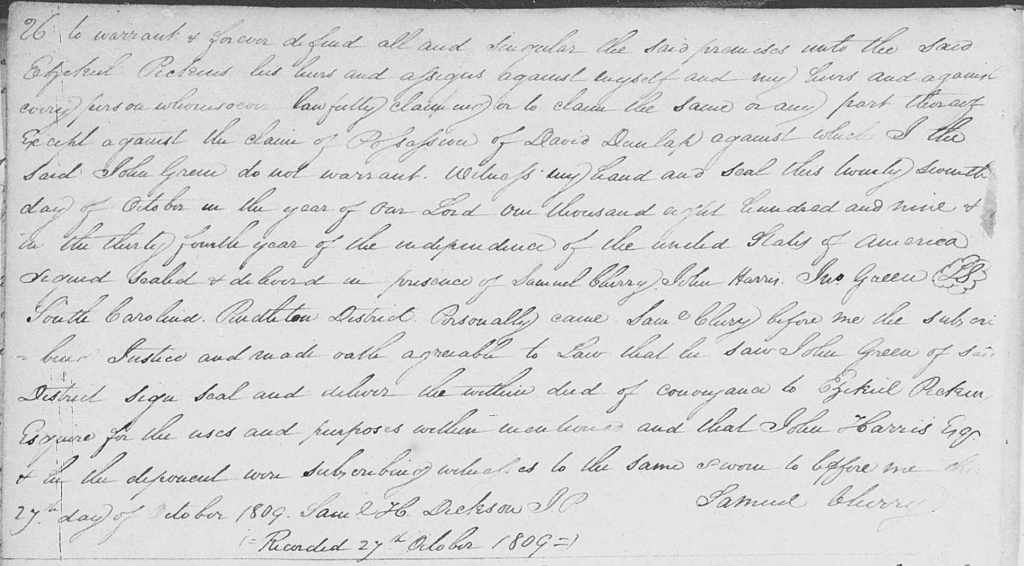 26 to warrant & forever defend all and singular the said premises unto the said
Ezekiel Pickens his heirs and assigns against myself and my heirs and against
every person whomsoever lawfully claiming or to claim the same or any part thereof
Except against the claim of Possession of David Dunlap against which I the
said John Green do not warrant. Witness my hand and seal this twenty seventh
day of October in the year of our Lord one thousand eight hundred and nine &
in the thirty fourth year of the independence of the united States of America
signed sealed & deliverd in presence of Samuel Cherry, John Harris. Jno Green LS
South Carolina. Pendleton District. Personally came Saml Cherry before me the subscri
=bing Justice and made oath agreeable to Law that he saw John Green of said
District sign seal and deliver the within deed of conveyance to Ezekiel Pickens
Esquire for the uses and purposes within mentioned and that John Harris Esqr
& he the deponent were subscribing witnesses to the same sworn to before me this
27th day of October 1809. Saml H. Dickson J P Samuel Cherry
(=Recorded 27th October 1809=)